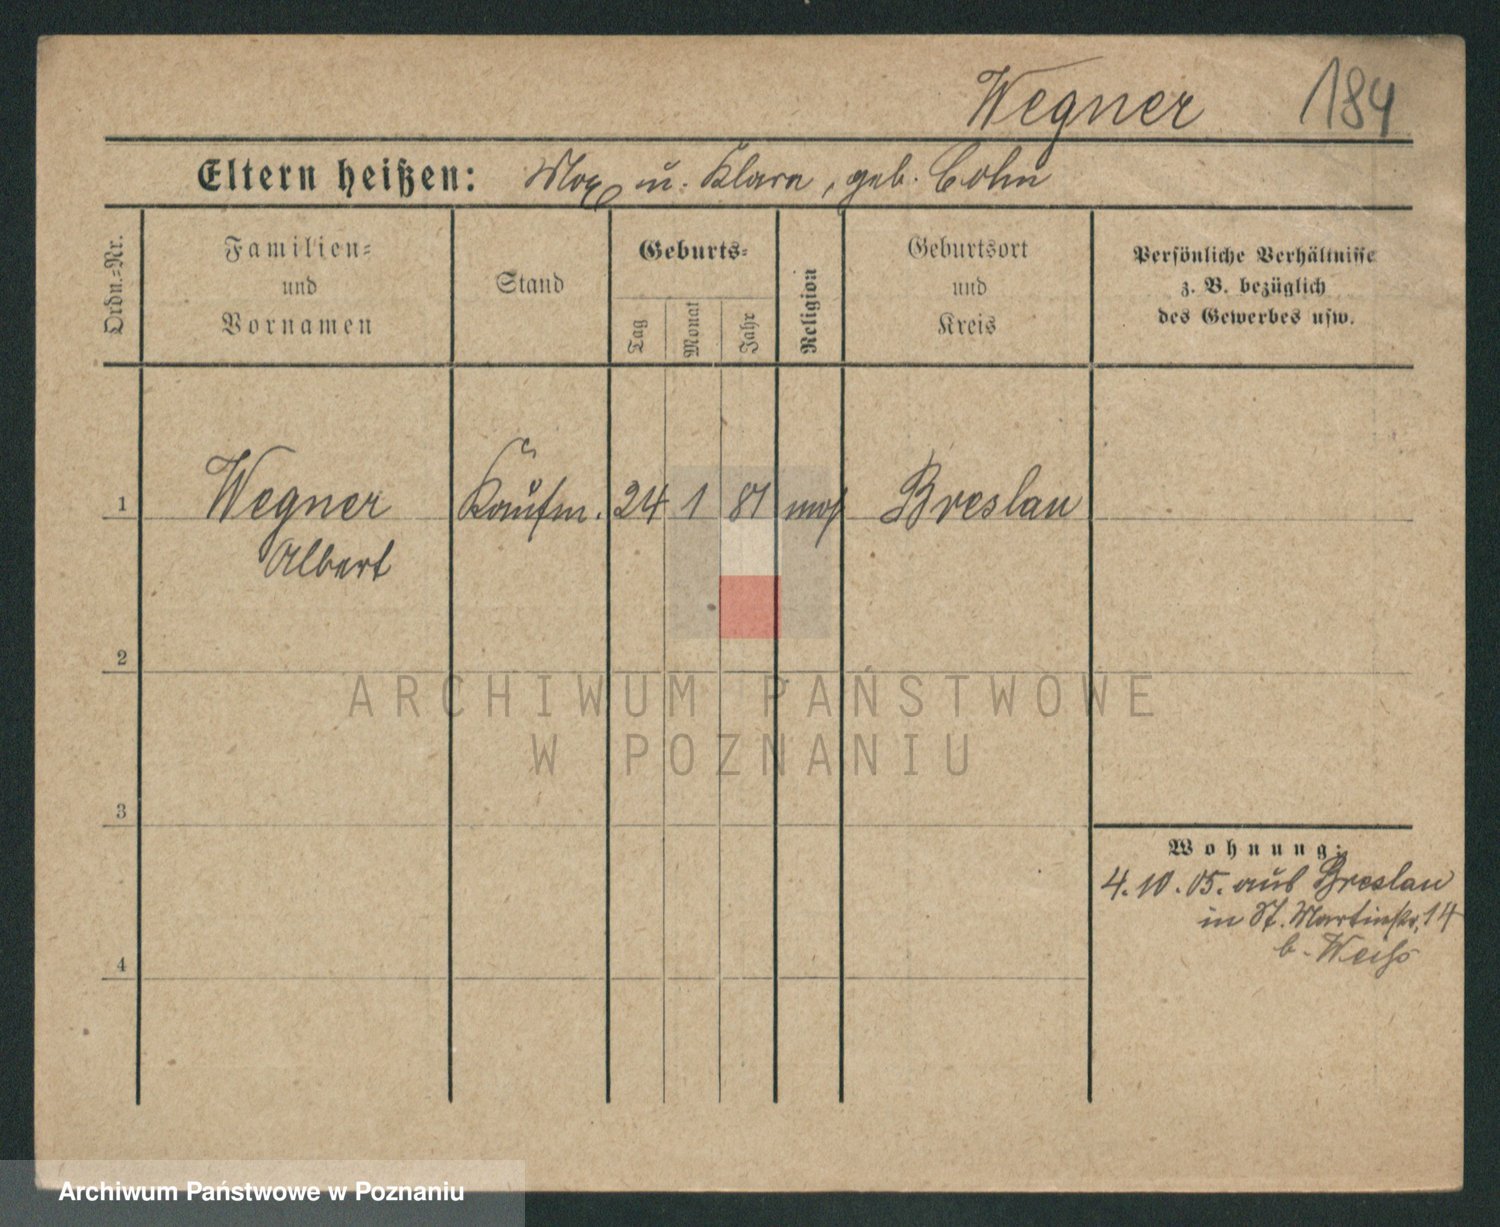 Wegner 184
Eltern heißen: Max u. Klara, geb. Cohn
Ordn.=Nr.
Familien=
und
Vornamen
Stand
Geburts=
Tag
Monat
Jahr
Religion
Geburtsort
und
Kreis
Persönliche Verhältnisse
z. B. bezüglich
des Gewerbes usw.
1 Wegner Kaufm. 24 1 81 mos Breslau
Albert
2
3
4
Wohnung:
4.10.05. aus Breslau
in St. Martinstr. 14
b. Weiss
ARCHIWUM PAŃSTWOWE
W POZNANIU
Archiwum Państwowe w Poznaniu